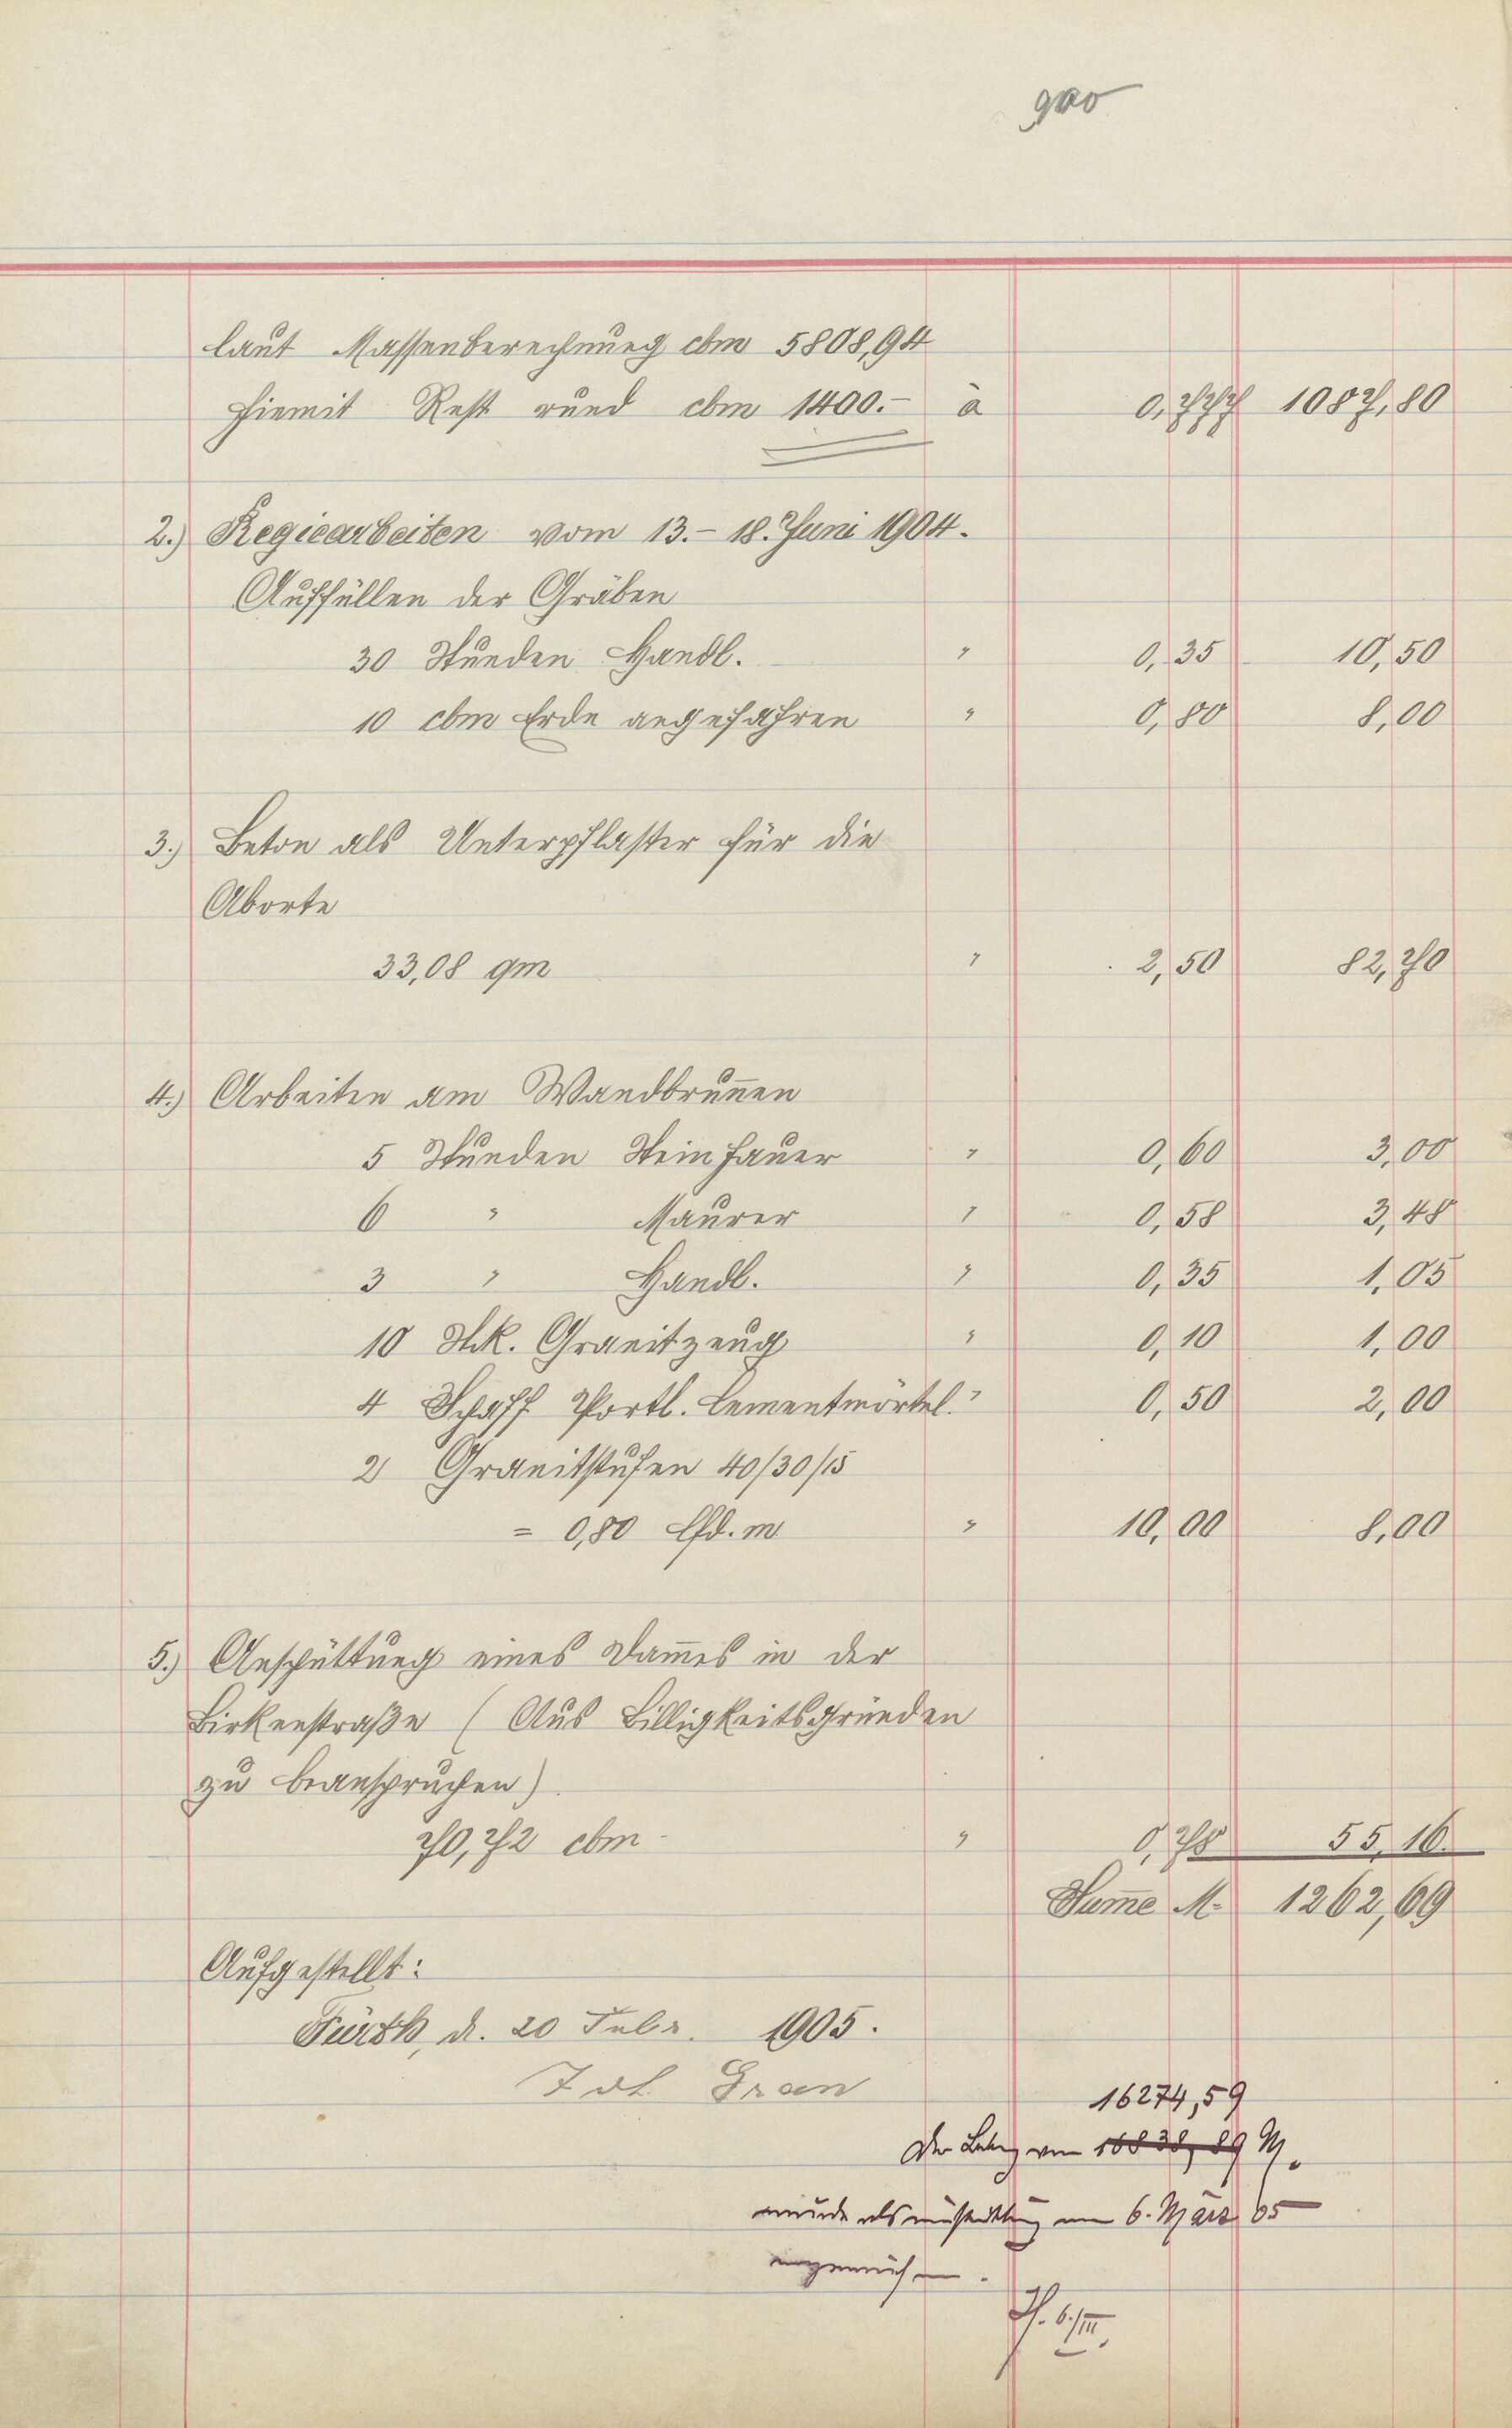 laut Massenberechnung cbm 5808,94
hiemit Rest rund cbm 1400.- à 0,777 1087,80
2.) Regiearbeiten vom 13.- 18. Juni 1904.
Auffüllen der Gräben
30 Stunden Handl. " 0,35 10,50
10 cbm Erde angefahren " 0,80 8,00
3.) Beton als Unterpflaster für die
Aborte
33,08 qm " 2,50 82,70
4.) Arbeiten am Wandbrun̄en
5 Stunden Steinhauer " 0,60 3,00
6 " Maurer " 0,58 3,48
3 " Handl. " 0,35 1,05
10 Stk. Granitzeug " 0,10 1,00
4 Schaff Portl. Cementmörtel. " 0,50 2,00
2 Granitstufen 40/30/15
= 0,80 lfd. m " 10,00 8,00
5.) Anschüttung eines Dam̄es in der
Birkenstraße (Aus Billigkeitsgründen
zu beanspruchen)
70,72 cbm " 0,78 55,16.
Sum̄e M. 1262,69
Aufgestellt:
Fürth, d. 20 Febr. 1905.
16274,59
Der Betrag von 16838,89 M.
wurde als am 6. März 05
angewiesen.
6/III.